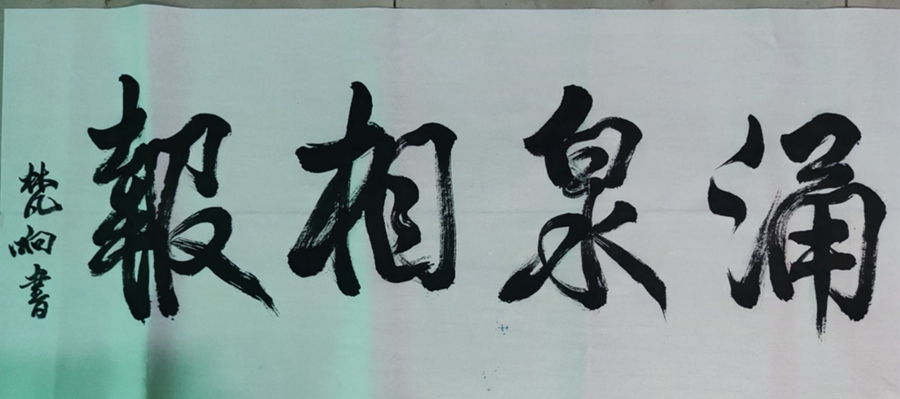 涌泉相報
梵响書